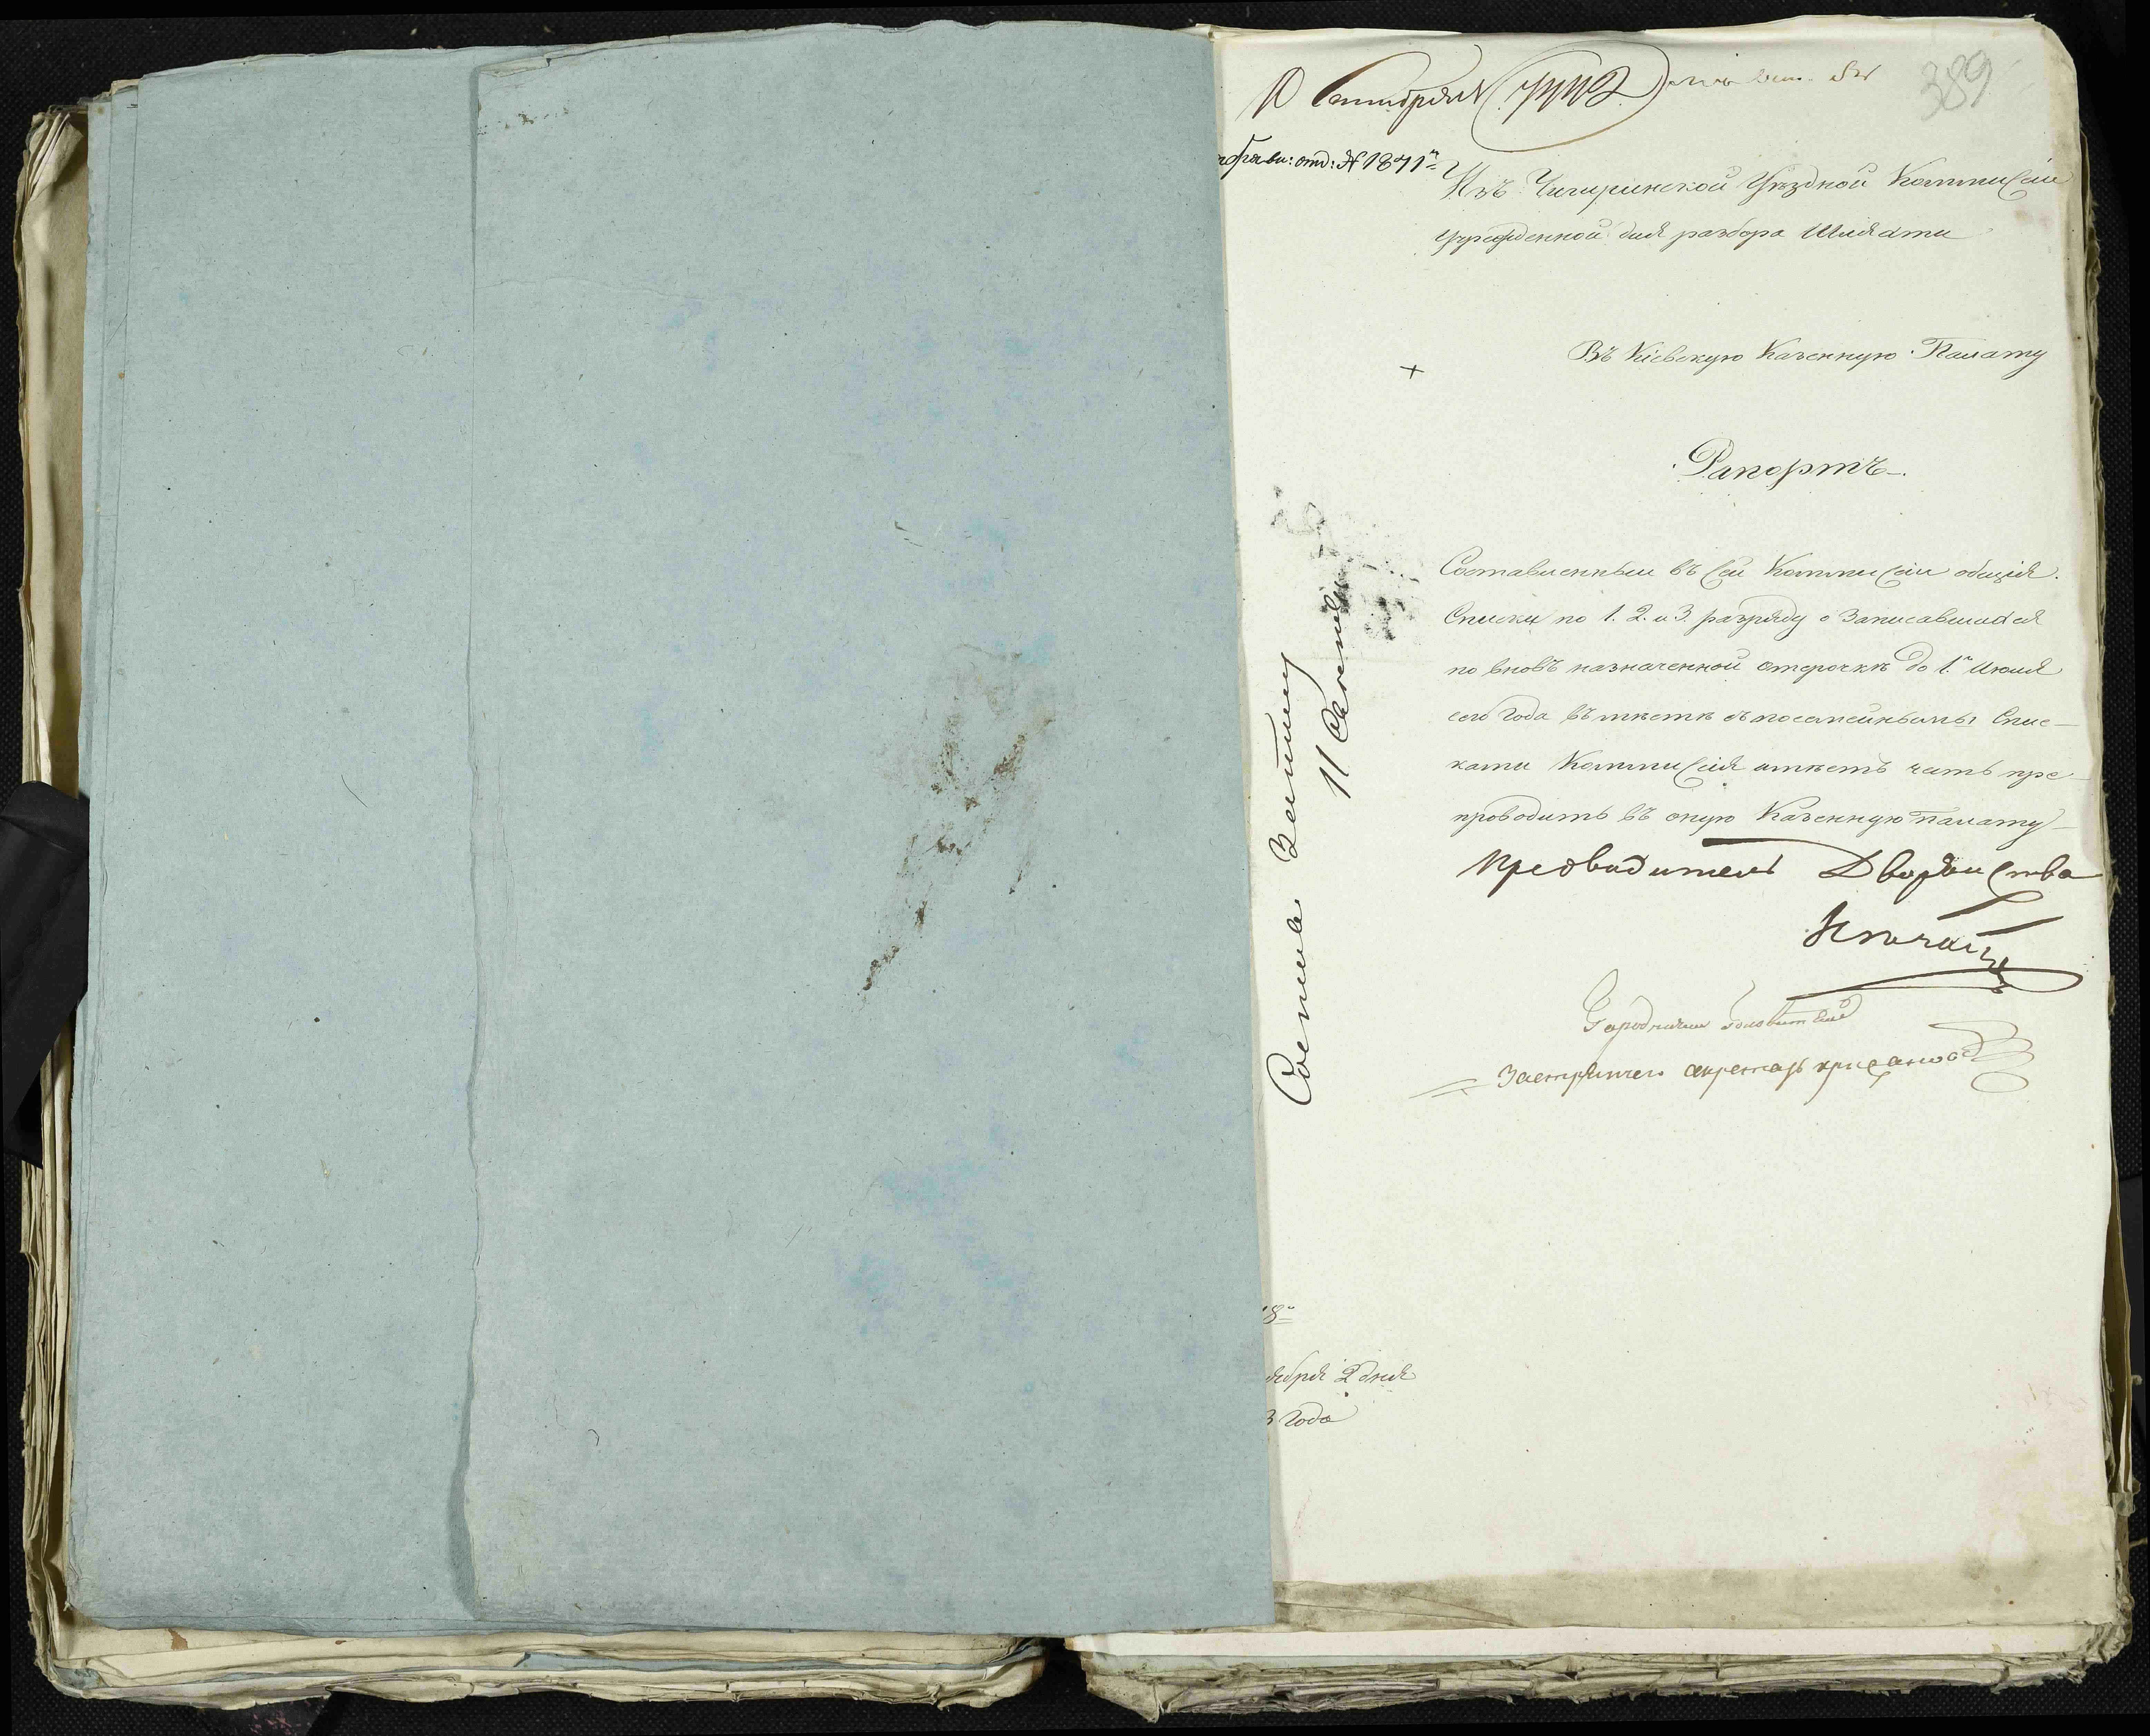 389
10 Сентября
отд: № 1871
Изъ Чигиринской Уѣздной Коммисіи
учрежденной для разбора Шляхти
Въ Кіевскую Казенную Палату
Рапортъ
Составленныи въ сей Коммисіи общія
Списки по 1. 2. и 3. разряду о записавшихся
по вновь назначенной отсрочкѣ до 1. Июля
сего года вместѣ съ посемейными Спис-
ками Коммисія имѣетъ честь пре-
проводить въ оную Казенную палату
Предводитель Дворянства
Городничий
секретарь
11 Сентября
8
ября 2 дня
3 года